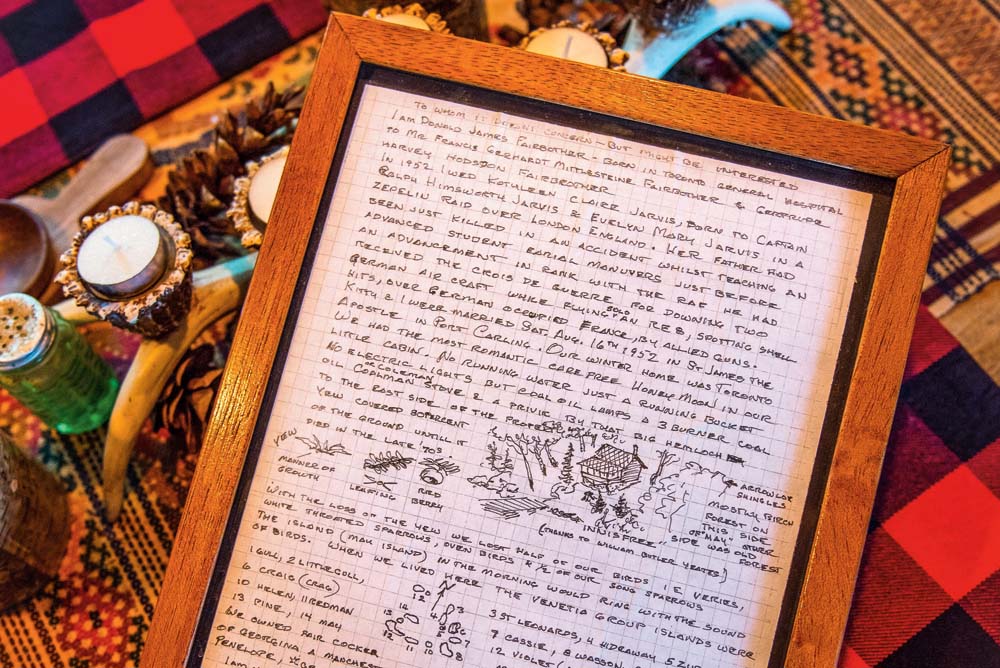 TO WHOM IT DOESN'T CONCERN - BUT MIGHT BE INTERESTED
I AM DONALD JAMES FAIRBOTHER - BORN IN TORONTO GENERAL HOSPITAL
TO MR FRANCIS GERHARDT MITTLESTEINE FAIRBOTHER & GERTRUDE
HARVEY HODSDON FAIRBROTHER
IN 1952 I WED KATHLEEN CLAIRE JARVIS, BORN TO CAPTAIN
RALPH HIMSWORTH JARVIS & EVELYN MARY JARVIS IN A
ZEPELIN RAID OVER LONDON ENGLAND. HER FATHER HAD
BEEN JUST KILLED IN AN ACCIDENT WHILST TEACHING AN
ADVANCED STUDENT EARIAL MANUVERS JUST BEFORE
AN ADVANCEMENT IN RANK WITH THE RAF HE HAD
RECEIVED THE CROIS DE GUERRE FOR DOWNING TWO
GERMAN AIR CRAFT WHILE FLYING SOLO AN RE8, SPOTTING SHELL
HITS, OVER GERMAN OCCUPIED FRANCE, BY ALLIED GUNS.
KITTY & I WERE MARRIED SAT. AUG. 16TH 1952 IN ST JAMES THE
APOSTLE IN PORT CARLING OUR WINTER HOME WAS TORONTO
WE HAD THE MOST ROMANTIC CARE FREE HONEY MOON IN OUR
LITTLE CABIN. NO RUNNING WATER JUST A RUNNING BUCKET
NO ELECTRIC LIGHTS BUT COAL OIL LAMPS A 3 BURNER COAL
OIL OR COLEMAN STOVE & A PRIVIE BY THAT BIG HEMLOCK
TO THE EAST SIDE OF THE
YEW COVERED 80 PERCENT
OF THE GROUND UNTIL IT
DIED IN THE LATE '70S
VIEW
MANNER OF
GROWTH
LEAFING
RED
BERRY
ARROWLOX
SHINGLES
MOSTLY BIRCH
FOREST ON
THIS SIDE
OF "MAY" OTHER
SIDE WAS OLD
FOREST
INNISFREE
(THANKS TO WILLIAM BUTLER YEATES)
WITH THE LOSS OF THE YEW WE LOST HALF OF OUR BIRDS I.E. VERIES,
WHITE THROATED SPARROWS, OVEN BIRDS & 1/2 OF OUR SONG SPARROWS
THE ISLAND (MAY ISLAND) IN THE MORNING WOULD RING WITH THE SOUND
OF BIRDS. WHEN WE LIVED HERE THE VENETIA GROUP ISLANDS WERE
1 GULL, 2 LITTLE GULL,
3 ST LEONARDS, 4 HIDEAWAY 5
6 CRAIG (CRAG)
7 CASSIE, 8 WASSON,
10 HELEN, 11 REDMAN
12 VIOLET
13 PINE, 14 MAY
WE OWNED FAIR COCKER
OF GEORGINA A MANCHEST
PENELOPE,
I AM